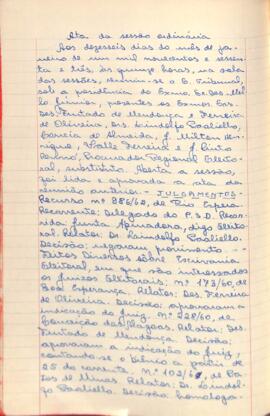 Ata da sessão ordinária
Aos dezesseis dias do mês de ja-
neiro de um mil novecentos e sessen-
ta e três, às quinze horas, na sala
das sessões, reuniu-se o E. Tribunal,
sob a presidência do Exmo. Sr. Des. Mello
Júnior, presentes os Exmos. Srs.
Des. Furtado de Mendonça e Ferreira
de Oliveira, drs. Lindolfo Paoliello,
Garcia de Almeida, J. Milton Hen-
rique, Valle Ferreira e J. Pinto
Procurador Regional Eleito-
ral, substituto. Aberta a sessão,
foi lida e aprovada a ata da
reunião anterior. - JULGAMENTOS -
Recurso nº 886/62, de Rio Espera
Recorrente: Delegado do P.S.D. Recor-
rida: Junta Apuradora, digo Eleito-
ral. Relator: dr. Lindolfo Paoliello.
Decisão: negaram provimento. -
Feitos Diversos sobre Escrivania
Eleitoral, em que são interessados
os Juizes Eleitorais. Nº 173/60, de
Boa Esperança. Relator: Des. Ferreira
de Oliveira. Decisão: aprovaram a
indicação do juiz. Nº 228/60, de
Conceição das Alagoas. Relator: Des.
Furtado de Mendonça. Decisão:
aprovaram a indicação do juiz,
contando-se o biênio a partir de
25 do corrente. Nº 102/62, de Pa-
tos de Minas. Relator: Dr. Lindol-
fo Paoliello. Decisão: homologa-